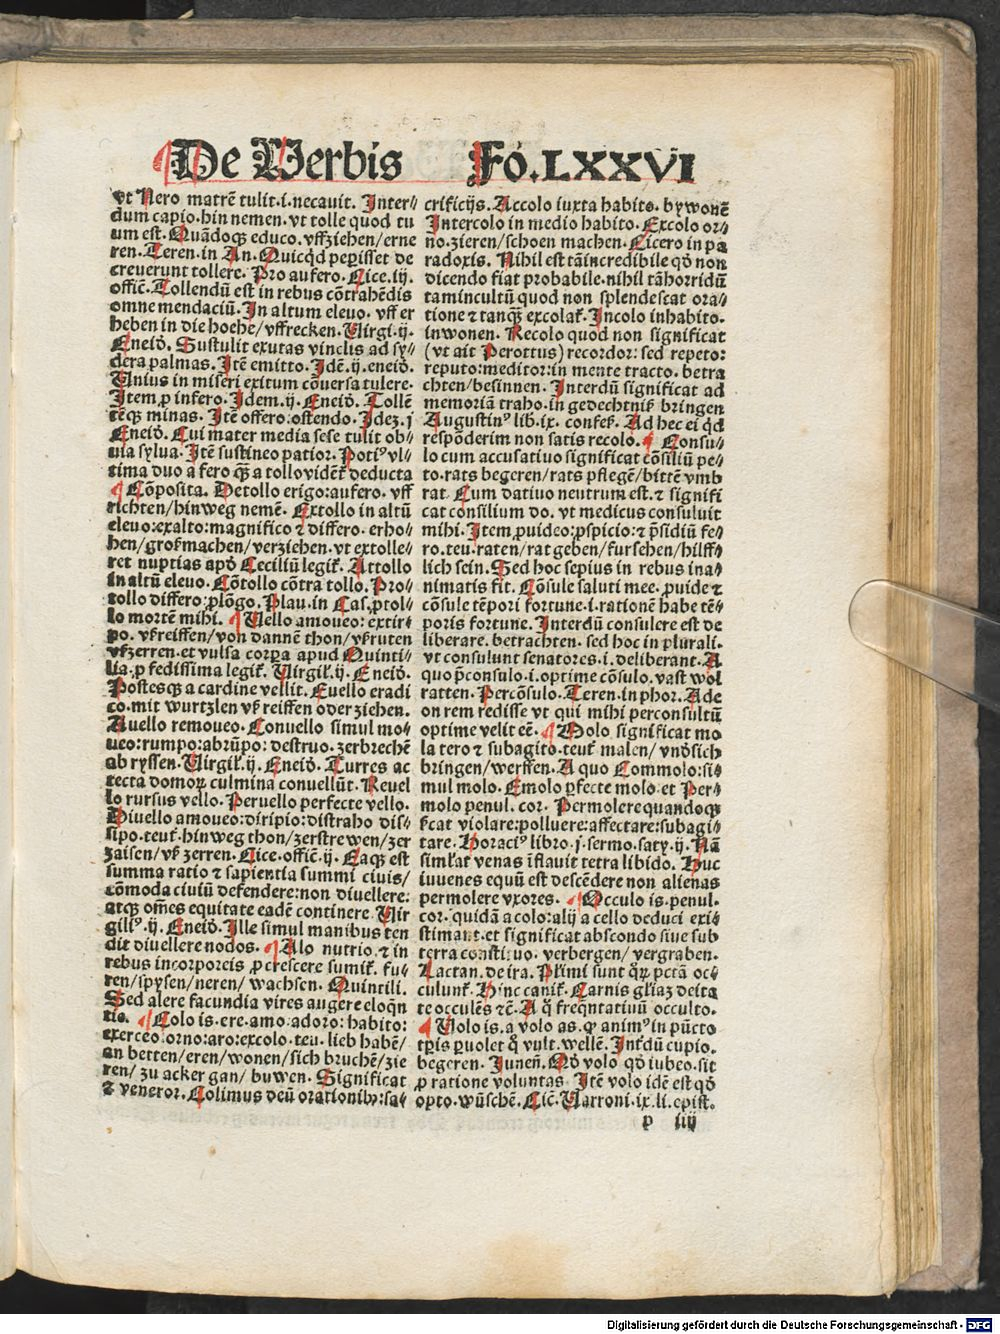 De Verbis Fo. LXXVI
vt Nero matrē tulit.i.necauit. Inter⸗
dum capio.hin nemen.vt tolle quod tu
um est. Quādoqꝫ educo.vffziehen/erne
ren. Teren.in An. Quicqd perisset de
creuerunt tollere. Pro aufero. Cice.iij.
offic̄. Tollendū est in rebus cōtrahēdis
omne mendaciū. In altum eleuo. vff er
heben in die hoehe/vffrecken. Virgi.ij.
Eneid̄. Sustulit exutas vinclis ad sy⸗
dera palmas. Itē emitto. Idē.ij.eneid̄.
Unius in miseri exitum cōuersa tulere.
Item ꝓ infero. Idem.ij. Eneid̄. Tollē
tēqꝫ minas. Itē offero:ostendo. Idez.j
Eneid̄. Cui mater media sese tulit ob⸗
uia sylua. Itē sustineo patior. Potiꝰ vl⸗
tima duo a fero qꝫ a tollo videt̄ deducta
¶ Cōposita. Detollo erigo:aufero. vff
richten/hinweg nemē. Extollo in altū
eleuo:exalto:magnifico ⁊ differo. erho⸗
hen/groß machen/verziehen. vt extolle⸗
ret nuptias apd̄ Ceciliū legit̄. Attollo
in altū eleuo. Cōtollo cōtra tollo. Pro⸗
tollo differo:ꝓlōgo. Plau.in Cas.ꝓtol⸗
lo mortē mihi. ¶ Uello amoueo:extir⸗
po. vßreiffen/von dannē thon/vßruten
vßzerren.et vulsa corpa apud Quinti⸗
lia. ꝓ fedissima legit̄. Virgil̄.ij. Eneid̄.
Postesqꝫ a cardine vellit. Euello eradi
co.mit wurtzlen vß reiffen oder ziehen.
Auello remoueo. Conuello simul mo⸗
ueo:rumpo:abrūpo: destruo. zerbrechē
ab ryssen. Virgil̄.ij. Eneid̄. Turres ac
tecta domoꝝ culmina conuellūt. Reuel
lo rursus vello. Peruello perfecte vello.
Diuello amoueo:diripio:distraho dis⸗
sipo.teut̄.hinweg thon/zerstrewen/zer
zaisen/vß zerren. Cice.offic̄.ij. Eaqꝫ est
summa ratio ⁊ sapientia summi ciuis/
cōmoda ciuiū defendere:non diuellere:
atqꝫ om̄es equitate eadē continere. Vir
giliꝰ.ij. Eneid̄. Ille simul manibus ten
dit diuellere nodos. ¶ Alo nutrio.⁊ in
rebus incorporeis ꝓ crescere sumit̄. fu⸗
ren/spysen/neren/ wachsen. Quintili.
Sed alere facundia vires augere eloqn
tie. ¶ Colo is.ere.amo adoro: habito:
exerceo:orno:aro:excolo.teu.lieb habē/
an betten/eren/wonen/sich bruchē/zie
ren/ zu acker gan/ buwen. Significat
⁊ veneror. Colimus deū orationibꝫ:sa⸗
crificijs. Accolo iuxta habito. bywonē
Intercolo in medio habito. Excolo or⸗
no.zieren/schoen machen. Cicero in pa
radoxis. Nihil est tā incredibile qd̄ non
dicendo fiat probabile.nihil tā horridū
tam incultū quod non splendescat ora⸗
tione ⁊ tanqꝫ excolat̄. Incolo inhabito.
inwonen. Recolo quod non significat
(vt ait Perottus) recordor: sed repeto:
reputo:meditor:in mente tracto. betra
chten/besinnen. Interdū significat ad
memoriā traho.in gedechtniß bringen
Augustinꝰ lib.ix. confess. Ad hec ei qd
respōderim non satis recolo. ¶ Consu⸗
lo cum accusatiuo significat cōsiliū pe⸗
to.rats begeren/rats pflegē/bittē vmb
rat. Cum datiuo neutrum est.⁊ signifi
cat consilium do. vt medicus consuluit
mihi. Item ꝓuideo:ꝓspicio:⁊ p̄sidiū fe⸗
ro.teu.raten/rat geben/fursehen/hilff⸗
lich sein. Sed hoc sepius in rebus ina⸗
nimatis fit. Cōsule saluti mee. ꝓuide ⁊
cōsule tēpori fortune.i.rationē habe tē⸗
poris fortune. Interdū consulere est de
liberare. betrachten. sed hoc in plurali.
vt consulunt senatores.i.deliberant. A
quo p̄consulo.i.optime cōsulo. vast wol
ratten. Percōsulo. Teren.in phor. Ade
on rem redisse vt qui mihi perconsultū
optime velit eē. ¶ Molo significat mo
la tero ⁊ subagito.teut̄ malen/ vnd̄sich
bringen/werffen. A quo Commolo:si⸗
mul molo. Emolo ꝑfecte molo et Per⸗
molo penul. cor. Permolere quandoqꝫ
ſcat violare:polluere:affectare:subagi⸗
tare. Horaciꝰ libro.j.sermo.saty.ij. Nā
simlat venas īflauit tetra libido. Huc
iuuenes equū est descēdere non alienas
permolere vxores. ¶ Occulo is.penul.
cor.quidā a colo:alij a cello deduci exi⸗
stimant.et significat abscondo siue sub
terra constituo. verbergen/ vergraben.
Lactan.de ira. Pl̄imi sunt qꝝ pctā oc⸗
culunt̄. Hinc canit̄. Carnis gl̄iaz deita
te occulēs ⁊c̄. A q̄ freqn̄tatiuū occulto.
¶ Volo is.a volo as. qꝛ animꝰ in pūcto
tp̄is ꝑuolet q̄ vult. wellē. Int̄dū cupio.
begeren. Juneñ. Qd̄ volo qd̄ iubeo. sit
ꝓ ratione voluntas. Itē volo idē est qd̄
opto.wūschē. Cic̄. Varroni.ix.li.epist.
p iiij
Digitalisierung gefördert durch die Deutsche Forschungsgemeinschaft - DFG